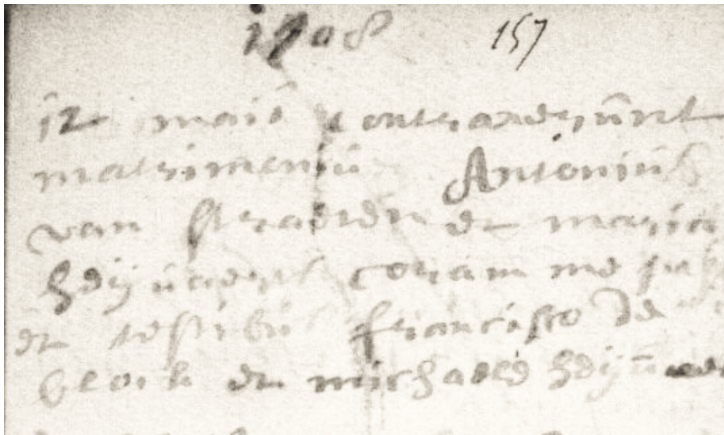 1708 157
12 maii contraxerunt
matrimoniu Antonius
van straeten et maria
heijvaert coram me
et testibus francisco de
block et michaele heijvaer